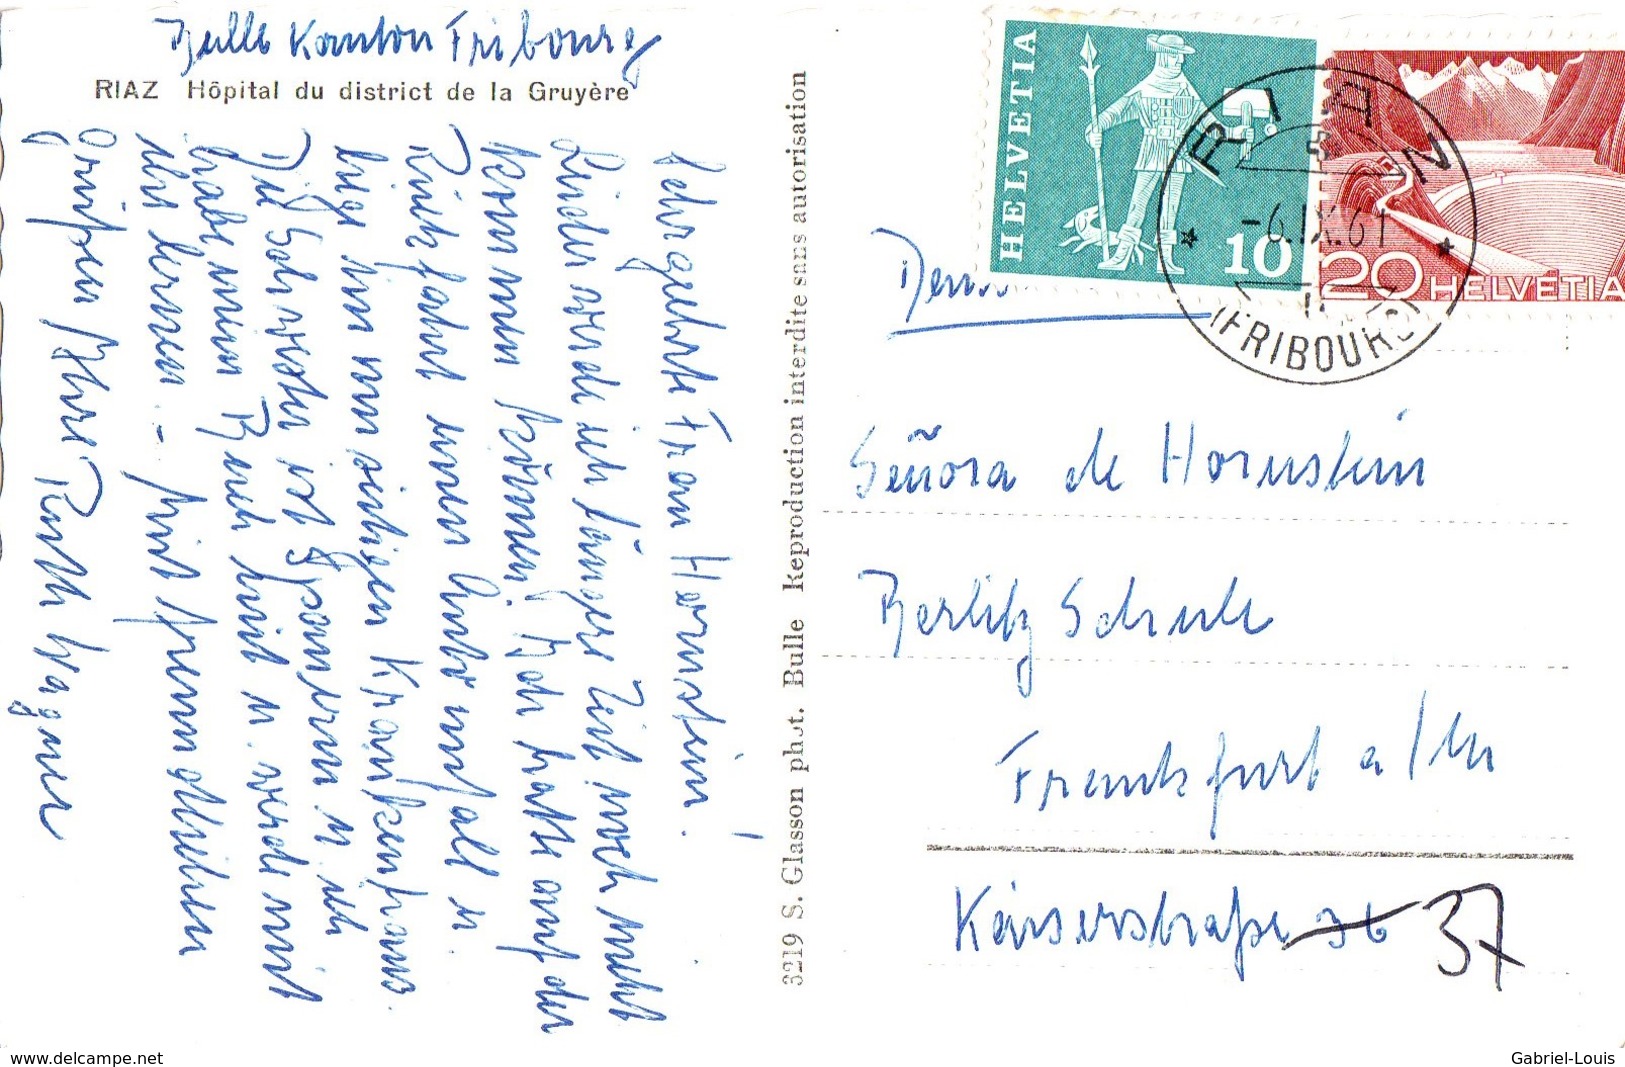 Bulle Kanton Fribourg
RIAZ Hôpital du district de la Gruyère
Sehr geehrte Frau Hornstein!
Leider werde ich längere Zeit noch nicht
kommen können. Ich hatte auf der
Rückfahrt einen Autounfall u.
liege im wenigen Krankenhaus.
Die Schwester ist u. ich
habe mein Buch mit u. werde mit
ihr lernen. - Mit freundlichen
Grüßen Ihre Ruth Wagner
3219 S. Glasson phot. Bulle Reproduction interdite sans autorisation
HELVETIA
10
20 HELVETIA
RIAZ
-6.IX.61
(FRIBOURG)
Señora de Hornstein
Berlitz Schule
Frankfurt a/M
Kaiserstraße 36 37
www.delcampe.net
Gabriel-Louis